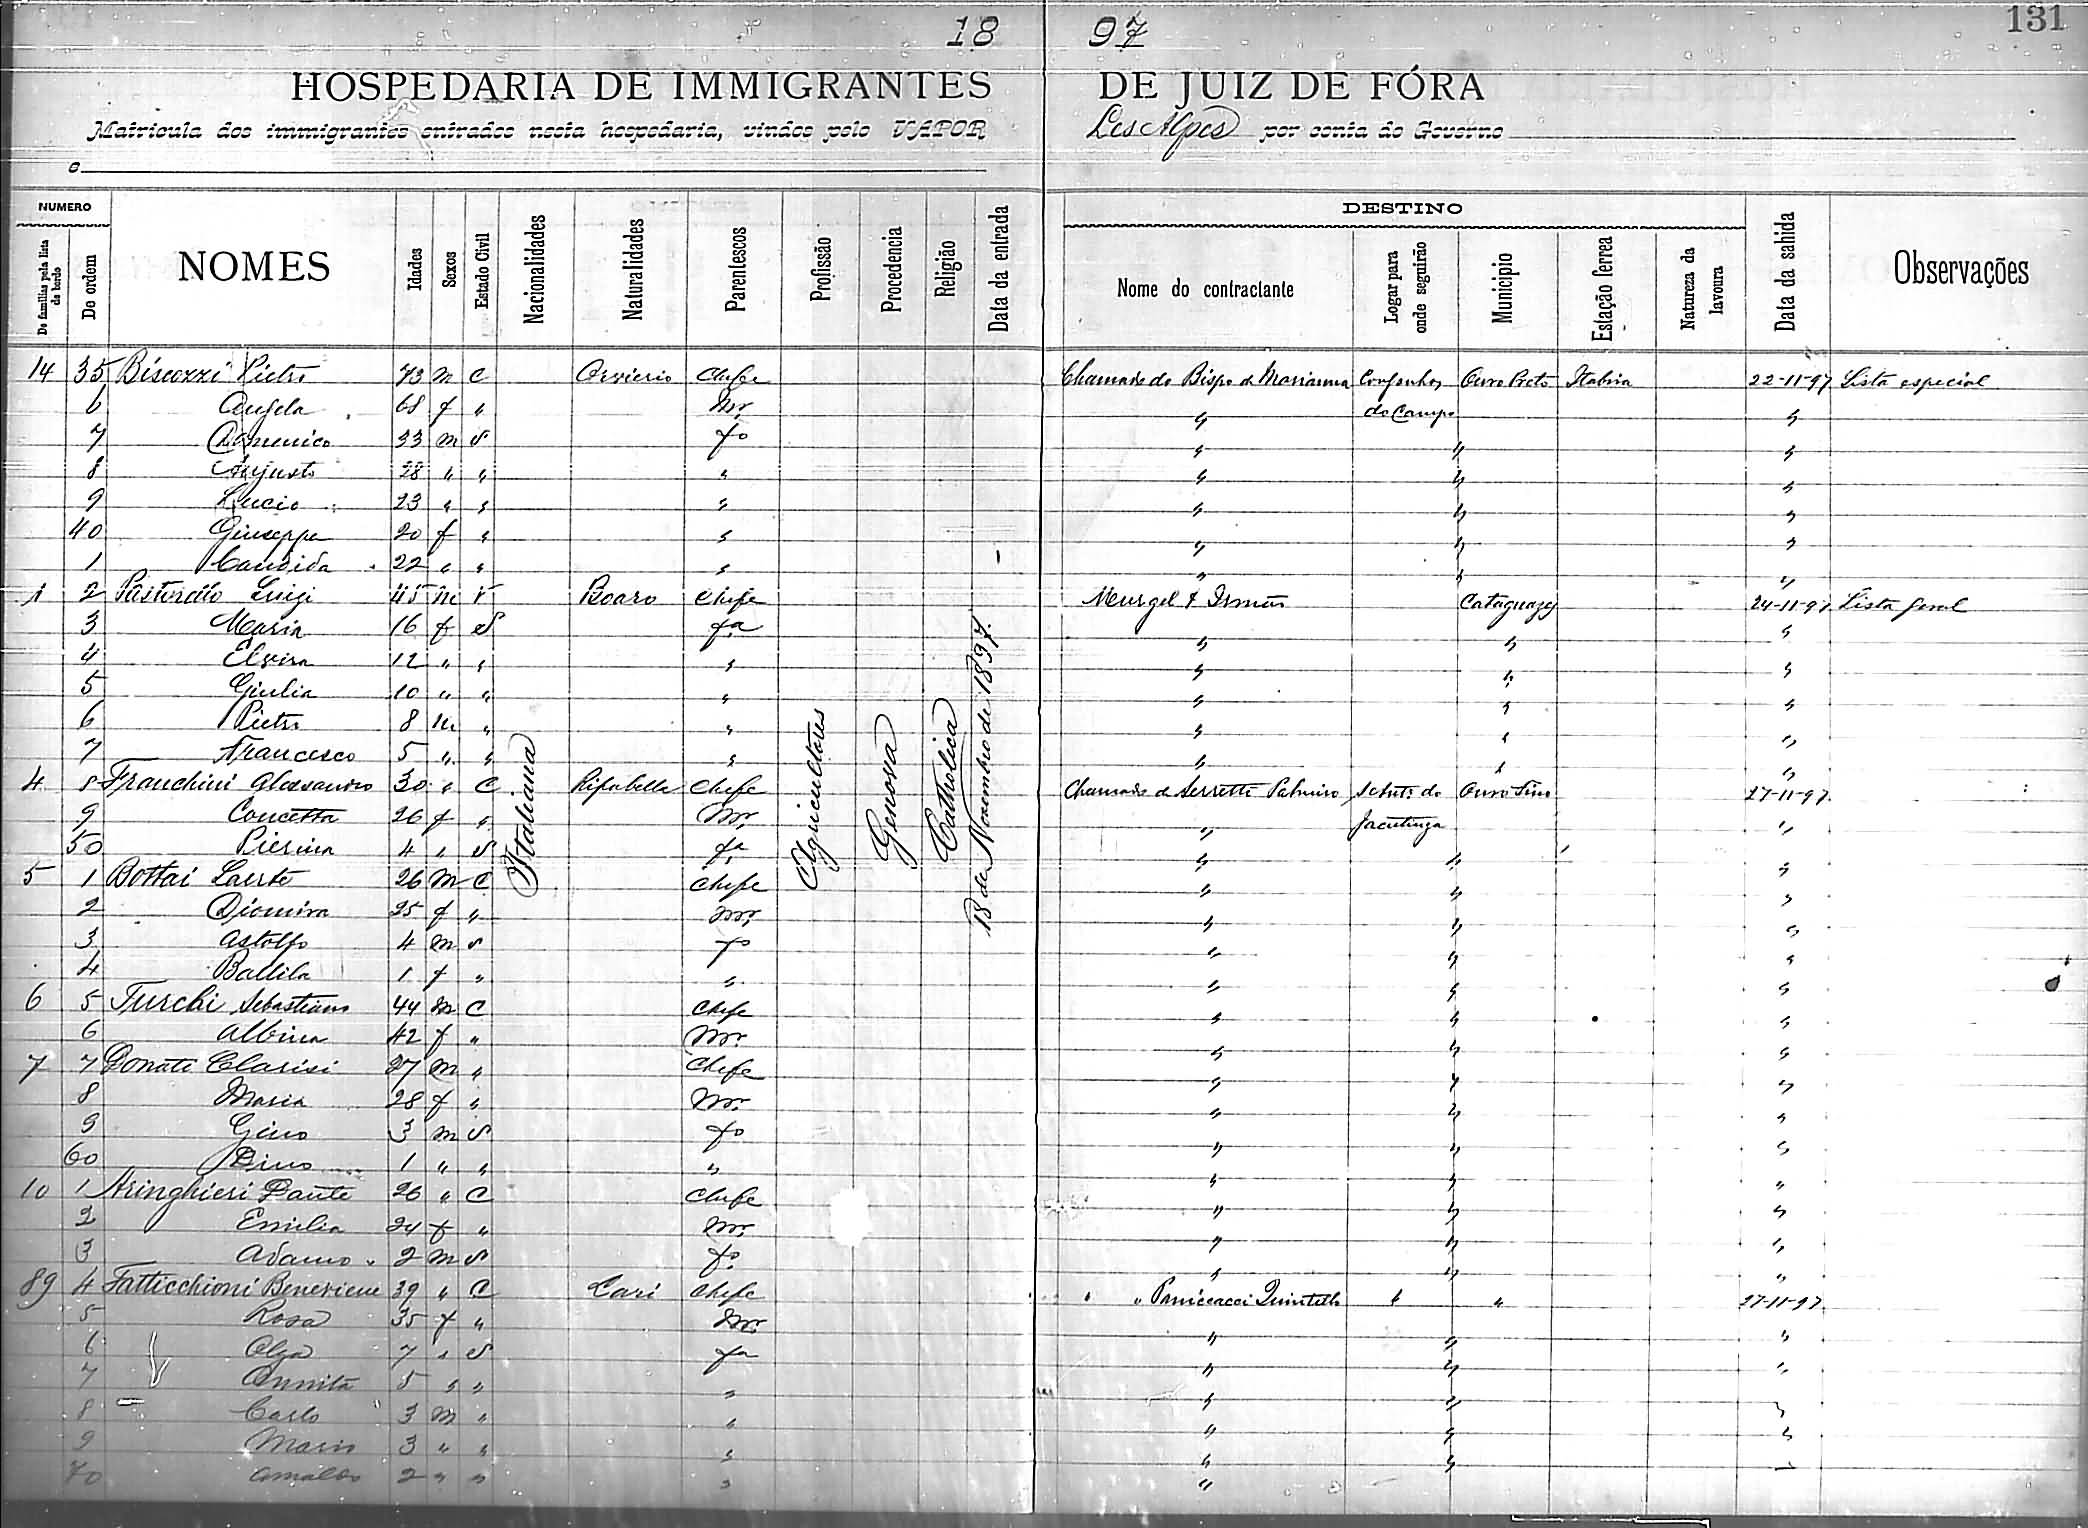 18 97
131
HOSPEDARIA DE IMMIGRANTES DE JUIZ DE FÓRA
Matricula dos immigrantes entrados nesta hospedaria, vindos pelo VAPOR Les Alpes por conta do Governo
e
NUMERO DESTINO
De familias pela lista de bordo De ordem NOMES Idades Sexos Estado Civil Nacionalidades Naturalidades Parentescos Profissão Procedencia Religião Data da entrada Nome do contractante Logar para onde seguirão Municipio Estação ferrea Natureza da lavoura Data da sahida Observações
14 35 Biscozzi Pietro 73 m C Chefe Chamado do Bispo de Marianna Congonhas Ouro Preto Itabira 22-11-97 Lista especial
6 Angela 68 f " mr do Campo " "
7 Domenico 33 m S fo " " "
8 Augusto 28 " " " " " "
9 Lucio 23 " " " " " "
40 Giuseppe 20 f " " " " "
1 Candida 22 " " " " " "
1 2 Pastorello Luigi 45 m V Boaro Chefe Meurgel & Irmãos Cataguazes 24-11-97 Lista geral
3 Maria 16 f S fa " " "
4 Elvira 12 " " " " " "
5 Giulia 10 " " " " " "
6 Pietro 8 m " " " " "
7 Francesco 5 " " " " " "
4 8 Franchini Alessandro 30 " C Chefe Chamado de Serretti Palmiro Ouro Fino 27-11-97
9 Concetta 26 f " mr " Jacutinga "
50 Pierina 4 " S fa " " "
5 1 Bottai Laerte 26 m C Chefe " " "
2 Diomira 25 f " mr " " "
3 Astolfo 4 m S fo " " "
4 Balilla 1 f " " " " "
6 5 Turchi Sebastiano 44 m C Chefe " " "
6 Albina 42 f " mr " " "
7 7 Donati Clarisi 27 m " Chefe " " "
8 Maria 28 f " mr " " "
9 Gino 3 m S fo " " "
60 Dino 1 " " " " " "
10 1 Aringhieri Dante 26 " C Chefe " " "
2 Emilia 24 f " mr " " "
3 Adamo 2 m S fo " " "
89 4 Fatticchioni 39 " C Cari Chefe " " Paniccacci Quintello " " 27-11-97
5 Rosa 35 f " mr " " "
6 Olga 7 " S fa " " "
7 Annita 5 " " " " " "
8 Carlo 3 m " " " " "
9 Mario 3 " " " " " "
70 Amaldo 2 " " " "
Italiana
Agricultores
Genova
Catholica
18 de Novembro de 1897.